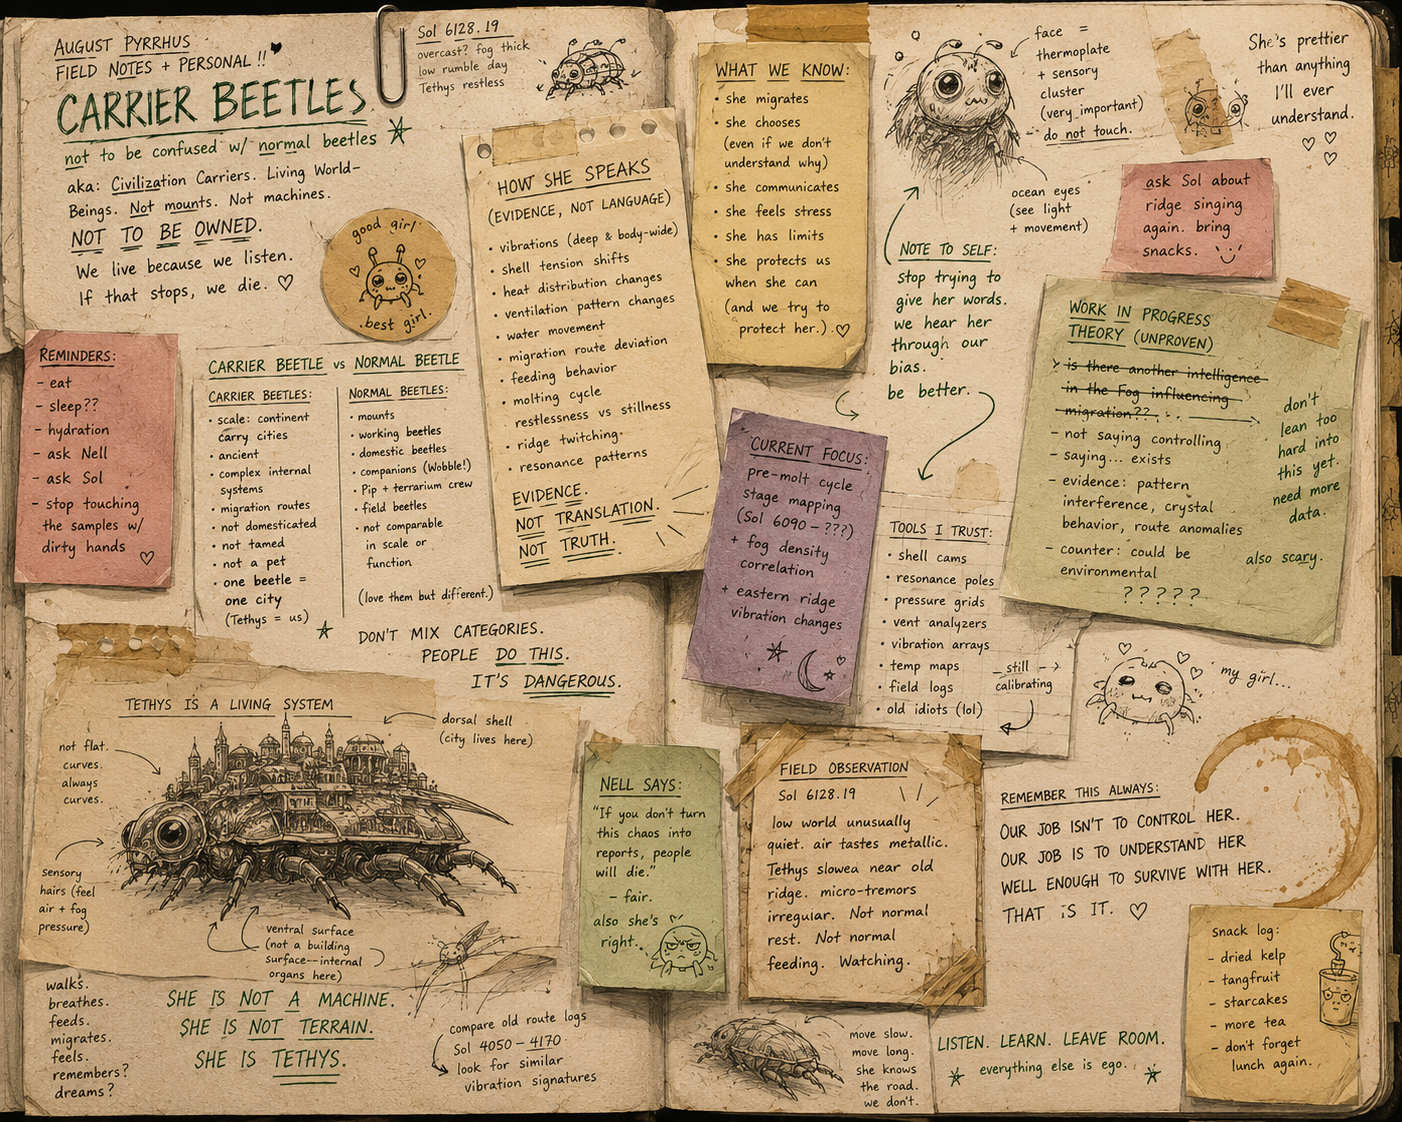 AUGUST PYRRHUS
FIELD NOTES + PERSONAL !!
CARRIER BEETLES
not to be confused w/ normal beetles
aka: Civilization Carriers. Living World-
Beings. Not mounts. Not machines.
NOT TO BE OWNED.
We live because we listen.
If that stops, we die. ♡
Sol 6128.19
overcast? fog thick
low rumble day
Tethys restless
good girl
.best girl.
REMINDERS:
- eat
- sleep??
- hydration
- ask Nell
- ask Sol
- stop touching
the samples w/
dirty hands ♡
CARRIER BEETLE vs NORMAL BEETLE
CARRIER BEETLES:
• scale: continent
carry cities
• ancient
• complex internal
systems
• migration routes
• not domesticated
• not tamed
• not a pet
• one beetle =
one city
(Tethys = us)
NORMAL BEETLES:
• mounts
• working beetles
• domestic beetles
• companions (Wobble!)
• Pip + terrarium crew
• field beetles
• not comparable
in scale or
function
(love them but different.)
DON'T MIX CATEGORIES.
PEOPLE DO THIS.
IT'S DANGEROUS.
HOW SHE SPEAKS
(EVIDENCE, NOT LANGUAGE)
• vibrations (deep & body-wide)
• shell tension shifts
• heat distribution changes
• ventilation pattern changes
• water movement
• migration route deviation
• feeding behavior
• molting cycle
• restlessness vs stillness
• ridge twitching
• resonance patterns
EVIDENCE.
NOT TRANSLATION.
NOT TRUTH.
TETHYS IS A LIVING SYSTEM
not flat.
curves.
always
curves.
dorsal shell
(city lives here)
sensory
hairs (feel
air + fog
pressure)
ventral surface
(not a building
surface--internal
organs here)
walks.
breathes.
feeds.
migrates.
feels.
remembers?
dreams?
SHE IS NOT A MACHINE.
SHE IS NOT TERRAIN.
SHE IS TETHYS.
compare old route logs
Sol 4050 – 4170
look for similar
vibration signatures
NELL SAYS:
"If you don't turn
this chaos into
reports, people
will die."
– fair.
also she's
right.
WHAT WE KNOW:
• she migrates
• she chooses
(even if we don't
understand why)
• she communicates
• she feels stress
• she has limits
• she protects us
when she can
(and we try to
protect her.) ♡
face =
thermoplate
+ sensory
cluster
(very important)
- do not touch.
ocean eyes
(see light
+ movement)
She's prettier
than anything
I'll ever
understand.
ask Sol about
ridge singing
again. bring
snacks.
NOTE TO SELF:
stop trying to
give her words.
we hear her
through our
bias.
be better.
WORK IN PROGRESS
THEORY (UNPROVEN)
is there another intelligence
in the Fog influencing
migration??
- not saying controlling
- saying... exists
- evidence: pattern
interference, crystal
behavior, route anomalies
- counter: could be
environmental
? ? ? ? ?
don't
lean too
hard into
this yet.
need more
data.
also scary.
CURRENT FOCUS:
pre-molt cycle
stage mapping
(Sol 6090 – ???)
+ fog density
correlation
+ eastern ridge
vibration changes
TOOLS I TRUST:
• shell cams
• resonance poles
• pressure grids
• vent analyzers
• vibration arrays
• temp maps
• field logs
• old idiots (lol)
still
calibrating
my girl...
FIELD OBSERVATION
Sol 6128.19
low world unusually
quiet. air tastes metallic.
Tethys slowed near old
ridge. micro-tremors
irregular. Not normal
rest. Not normal
feeding. Watching.
REMEMBER THIS ALWAYS:
OUR JOB ISN'T TO CONTROL HER.
OUR JOB IS TO UNDERSTAND HER
WELL ENOUGH TO SURVIVE WITH HER.
THAT IS IT. ♡
move slow.
move long.
she knows
the road.
we don't.
LISTEN. LEARN. LEAVE ROOM.
everything else is ego.
snack log:
- dried kelp
- tangfruit
- starcakes
- more tea
- don't forget
lunch again.